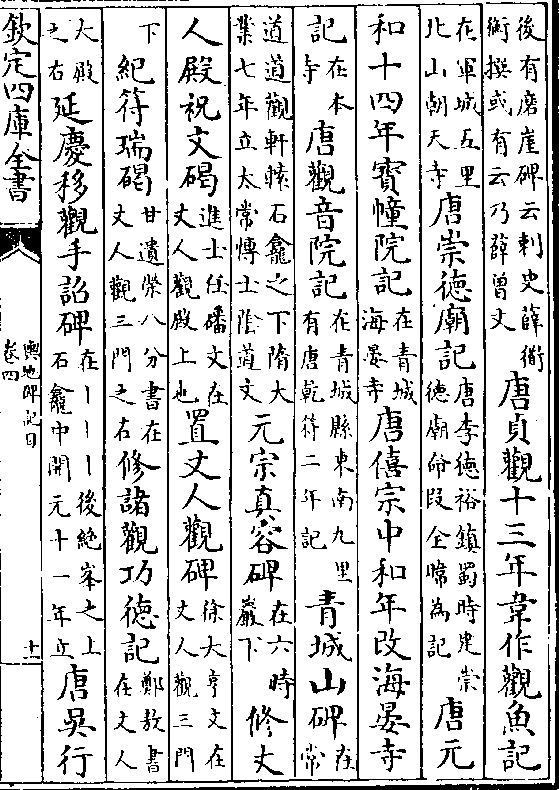 後有磨崖碑云刺史薛衛術撰或有云乃薛曾文唐貞觀十三年韋作觀魚記
在軍城五里北山朝天寺唐崇德廟記唐李德裕鎮蜀時建崇德廟命段全暐為記唐元
和十四年寶幢院記在青城海晏寺唐僖宗中和年改海晏寺
記在本寺唐觀音院記在青城縣東南九里有唐乾符二年記青城山碑在常
道道觀軒轅石龕之下隋大業七年立太常博士陰道文元宗真容碑在六時巖下修丈
人殿祝文碣進士任磻文在丈人觀殿上也置丈人觀碑徐大亨文在丈人觀三門
下紀符瑞碣甘遺榮八分書在丈人觀三門之右修諸觀功德記鄭敖書在丈人
大殿之右延慶移觀手詔碑在丨丨丨丨後絶峯之上石龕中開元十一年立唐吳行
欽定四庫全書
輿地碑記目
卷四
十一